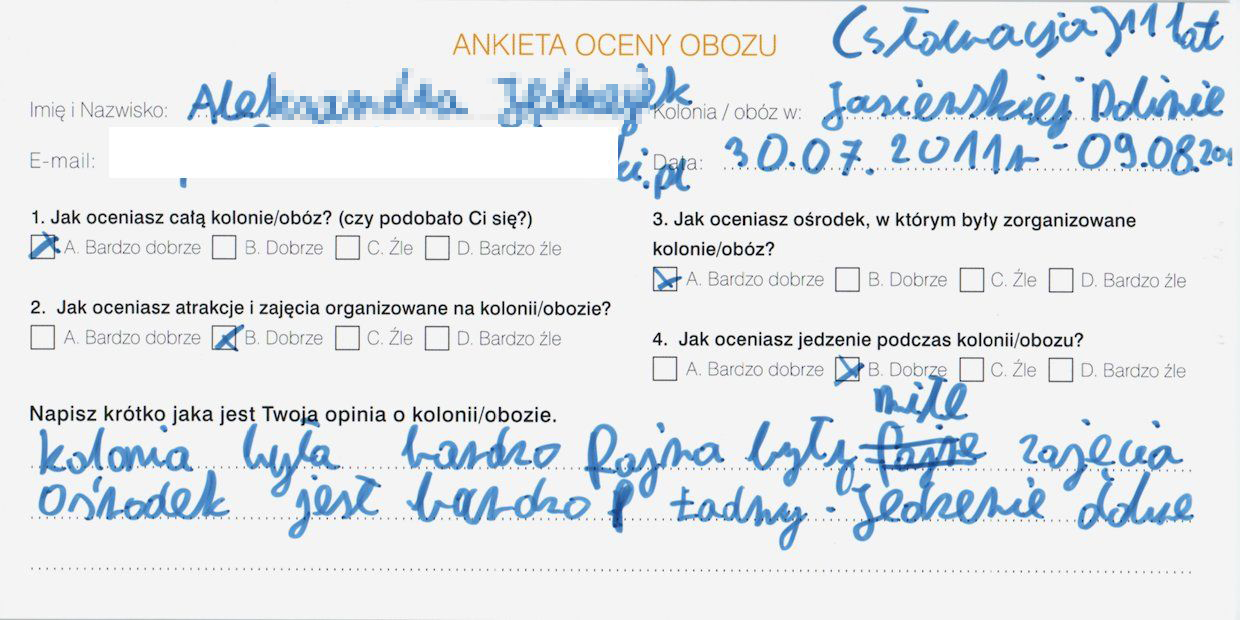 ANKIETA OCENY OBOZU
(słowacja) 11 lat
Imię i Nazwisko:
Kolonia / obóz w: Jasieńskiej Dolinie
E-mail:
Data: 30.07.2011r - 09.08.201
1. Jak oceniasz całą kolonie/obóz? (czy podobało Ci się?)
A. Bardzo dobrze B. Dobrze C. Źle D. Bardzo źle
2. Jak oceniasz atrakcje i zajęcia organizowane na kolonii/obozie?
A. Bardzo dobrze B. Dobrze C. Źle D. Bardzo źle
3. Jak oceniasz ośrodek, w którym były zorganizowane
kolonie/obóz?
A. Bardzo dobrze B. Dobrze C. Źle D. Bardzo źle
4. Jak oceniasz jedzenie podczas kolonii/obozu?
A. Bardzo dobrze B. Dobrze C. Źle D. Bardzo źle
Napisz krótko jaka jest Twoja opinia o kolonii/obozie.
miłe
kolonia była bardzo fajna były fajne zajęcia
Ośrodek jest bardzo ładny. Jedzenie dobre